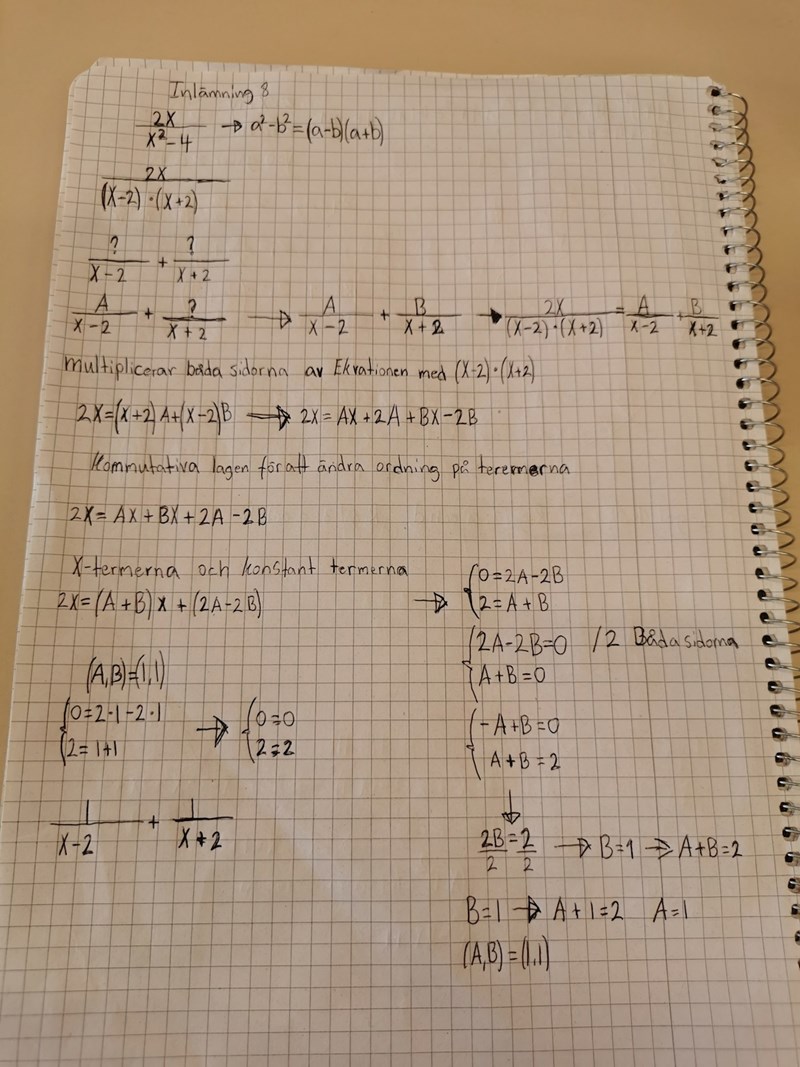 Inlämning 8
2X/(X²-4) → a²-b²=(a-b)(a+b)
2X/((X-2)·(X+2))
?/(X-2) + ?/(X+2)
A/(X-2) + ?/(X+2) → A/(X-2) + B/(X+2) → 2X/((X-2)·(X+2)) = A/(X-2) + B/(X+2)
Multiplicerar båda sidorna av Ekvationen med (X-2)·(X+2)
2X=(X+2)A+(X-2)B → 2X=AX+2A+BX-2B
Kommutativa lagen för att ändra ordning på terermerna
2X=AX+BX+2A-2B
X-termerna och konstant termerna
2X=(A+B)X+(2A-2B) → {0=2A-2B
2=A+B
{2A-2B=0 /2 Båda sidorna
A+B=0
(A,B)=(1,1)
{0=2·1-2·1 → {0=0
2=1+1 2=2
{-A+B=0
A+B=2
1/(X-2) + 1/(X+2)
↓
2B/2=2/2 → B=1 → A+B=2
B=1 → A+1=2 A=1
(A,B)=(1,1)